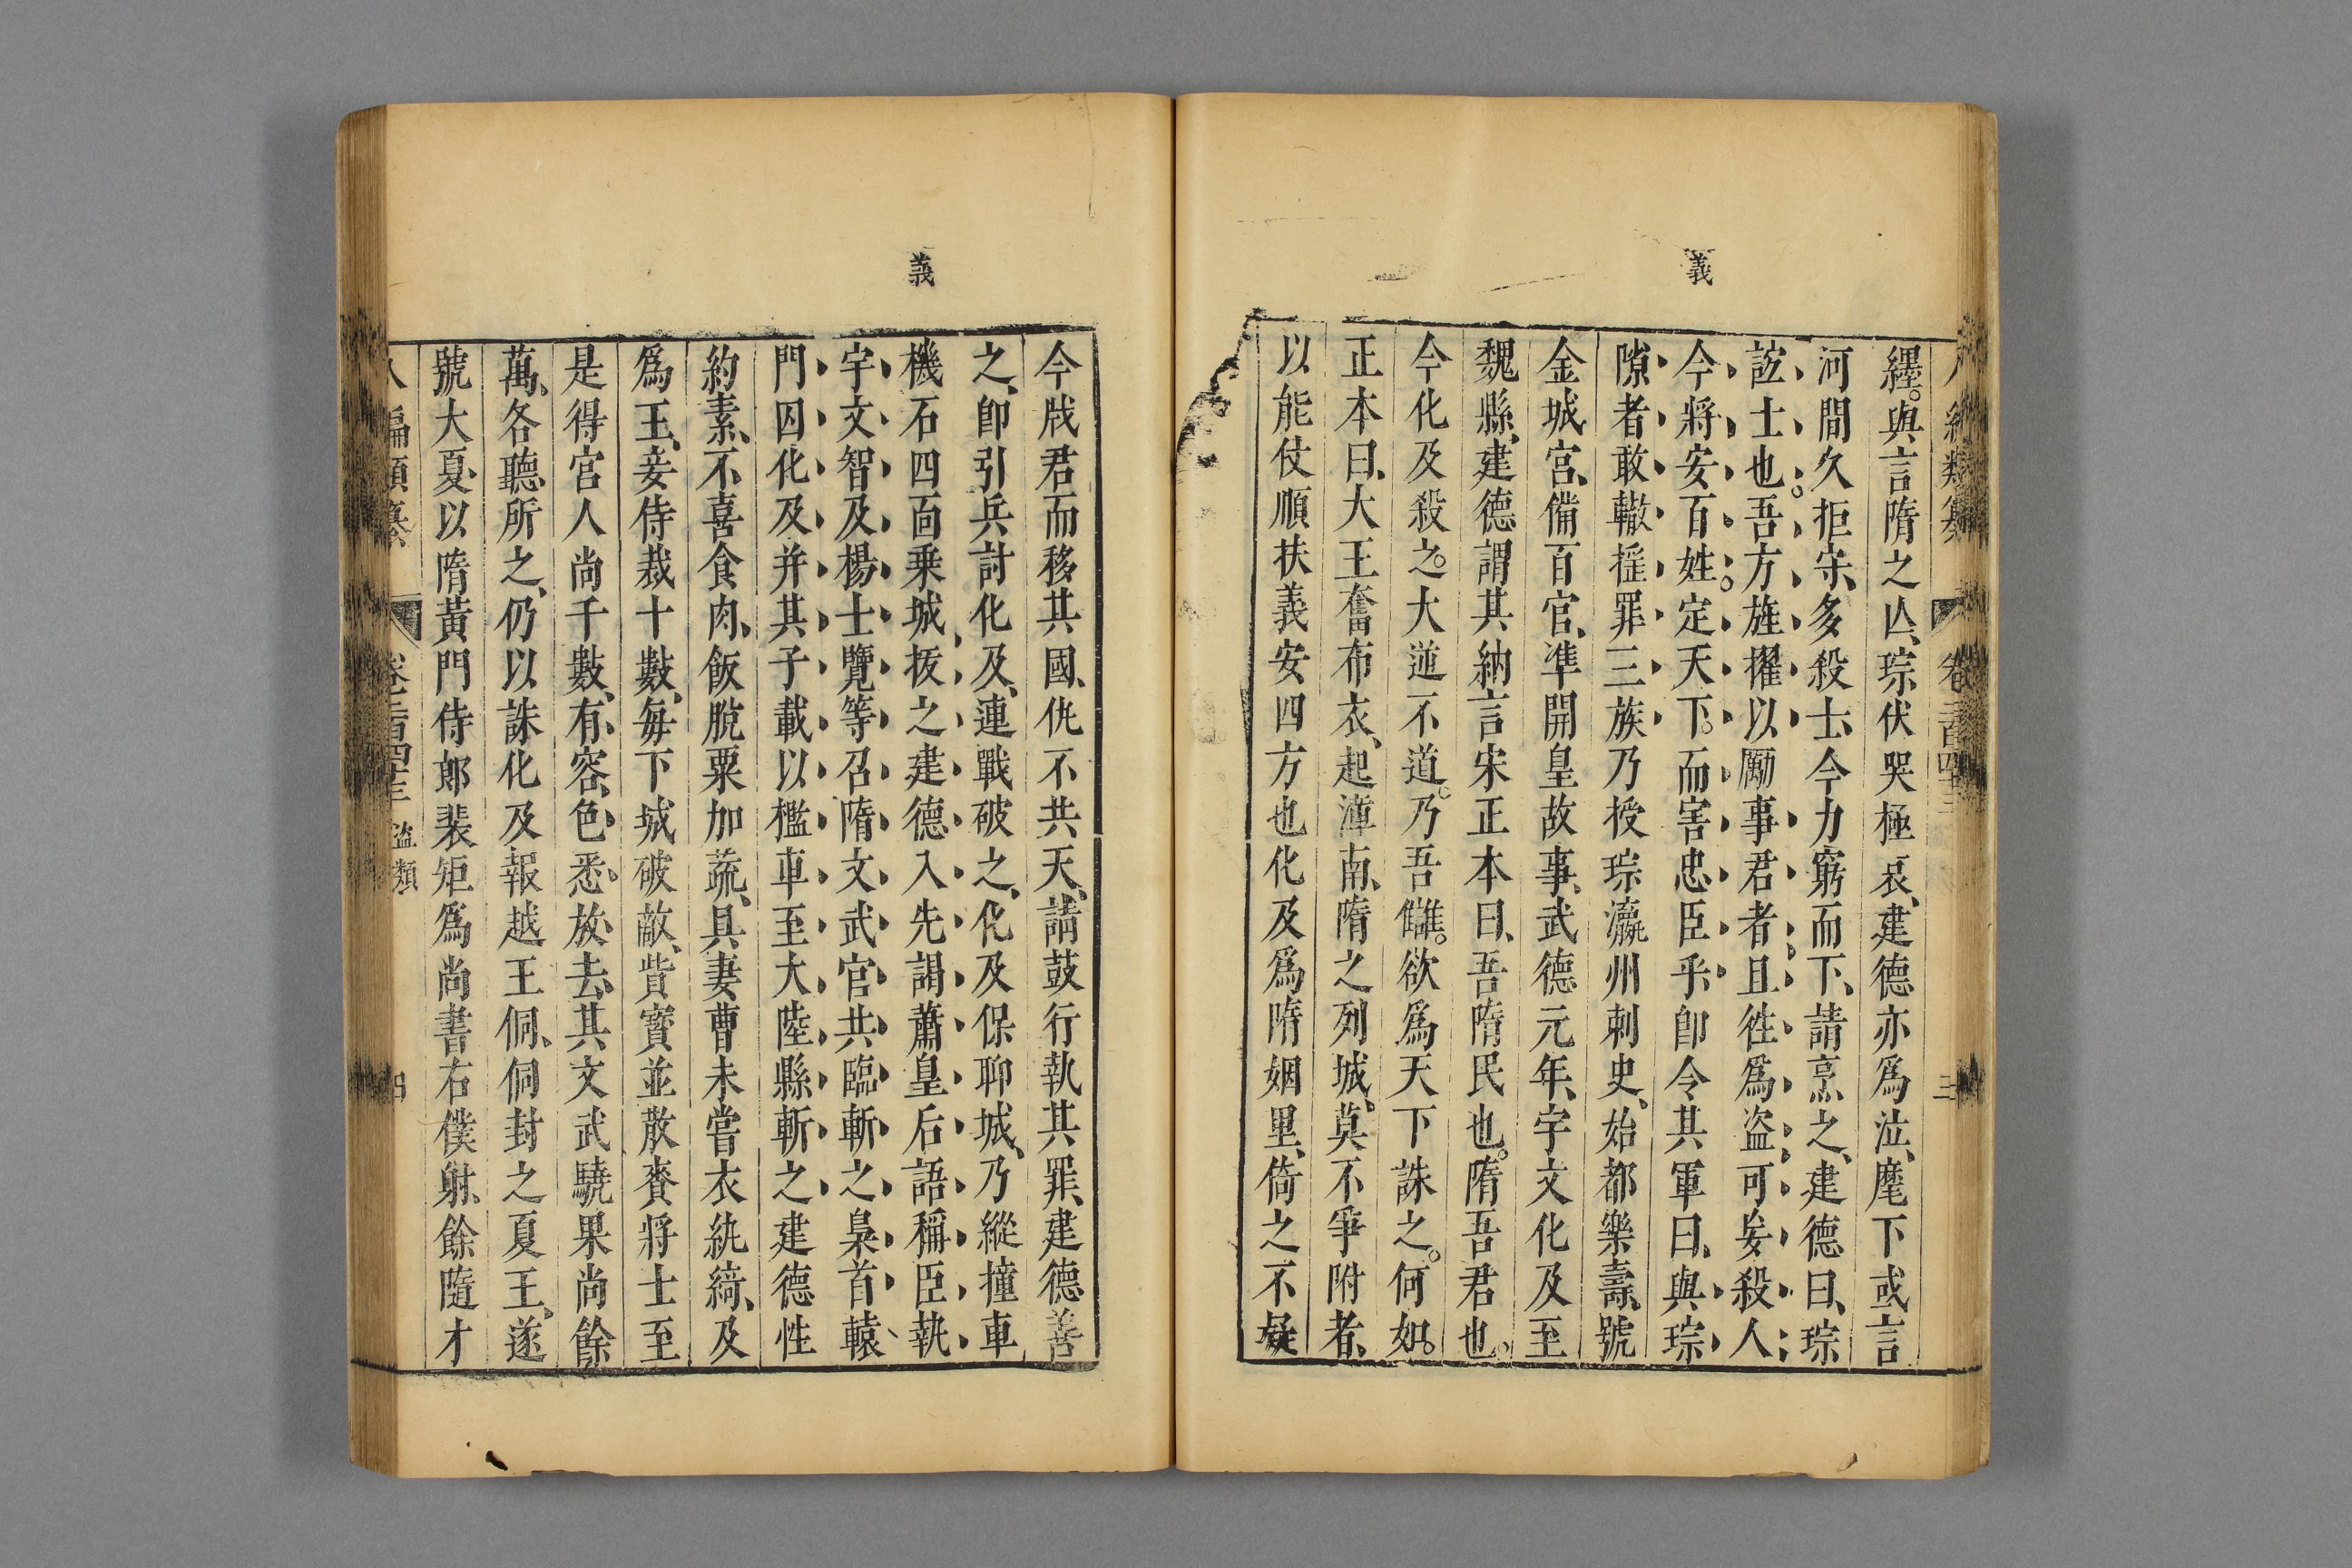 義
纆。與言隋之亾、琮伏哭極哀、建德亦爲泣、麾下或言
河間久拒守、多殺士、今力窮而下、請烹之、建德曰、琮
誼士也。吾方旌擢以勵事君者。且徃爲盗可妄殺人
今將安百姓。定天下。而害忠臣乎、卽令其軍曰、與琮
隙者敢轍搖罪三族乃授琮瀛州刺史、始都樂壽、號
金城宮、備百官、凖開皇故事、武德元年、宇文化及至
魏縣、建德謂其納言宋正本曰、吾隋民也。隋吾君也。
今化及殺之。大逆不道。乃吾讎。欲爲天下誅之。何如。
正本曰、大王奮布衣、起漳南、隋之列城、莫不爭附者、
以能仗順扶義安四方也化及爲隋姻里、倚之不疑
義
今戕君而移其國、仇不共天、請鼓行執其罪、建德善
之、卽引兵討化及、連戰破之、化及保聊城、乃縱撞車
機石四面乗城、拔之建德入先謁蕭皇后語稱臣執
宇文智及楊士覽等召隋文武官共臨斬之梟首轅
門囚化及并其子載以檻車至大陸縣斬之建德性
約素、不喜食肉、飯脫粟加蔬、具妻曹未嘗衣紈綺、及
爲王、妾侍裁十數、每下城破敵、貲寶並散賚將士至
是得宮人尚千數、有容色悉放去、其文武驍果尚餘
萬、各聽所之、仍以誅化及報越王侗、侗封之夏王、遂
號大夏以隋黃門侍郎裴矩爲尚書右僕射、餘隨才
編類纂 卷二百四十三 盗類